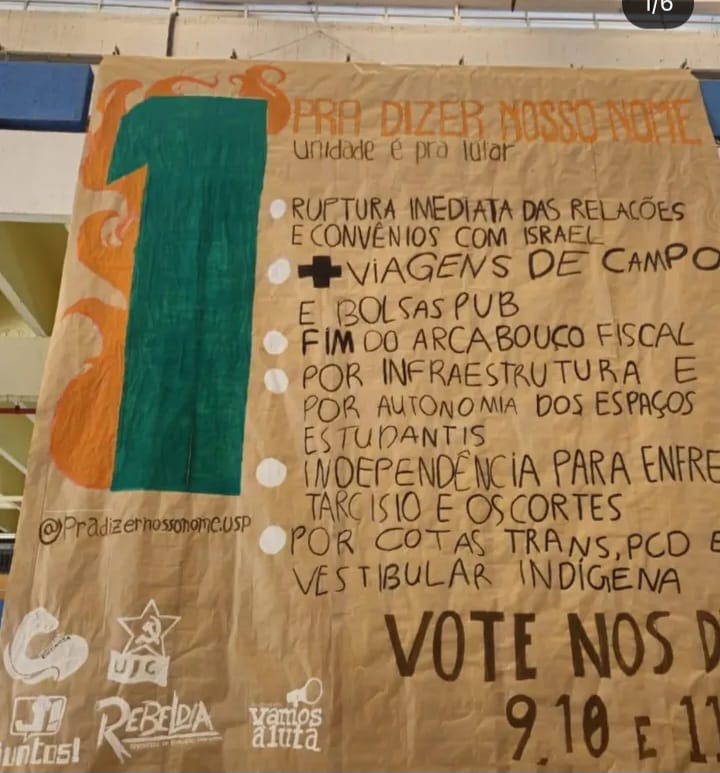 1/6
1
PRA DIZER NOSSO NOME
unidade é pra lutar
RUPTURA IMEDIATA DAS RELAÇÕES
E CONVÊNIOS COM ISRAEL
+ VIAGENS DE CAMPO
E BOLSAS PUB
FIM DO ARCABOUÇO FISCAL
POR INFRAESTRUTURA E
POR AUTONOMIA DOS ESPAÇOS
ESTUDANTIS
INDEPENDÊNCIA PARA ENFRE
TARCISIO E OS CORTES
POR COTAS TRANS, PCD E
VESTIBULAR INDÍGENA
@Pradizernossonome.usp
VOTE NOS D
9, 10 E 11
UJC
J!
juntos!
REBELDIA
vamos
à luta